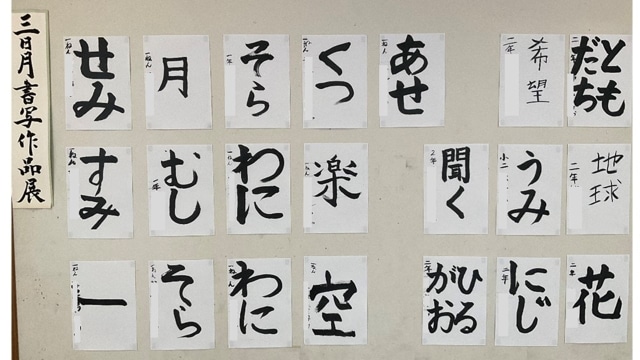 三日月書写作品展
せみ
一ねん
月
一ねん
そら
一年
くつ
一ねん
あせ
一ねん
希望
二年
とも
だち
二年
すみ
一ねん
むし
一年
わに
一ねん
楽
聞く
2年
うみ
小二
地球
二年
一
一ねん
そら
わに
一ねん
空
ひる
がお
二年
にじ
二年
花
二年